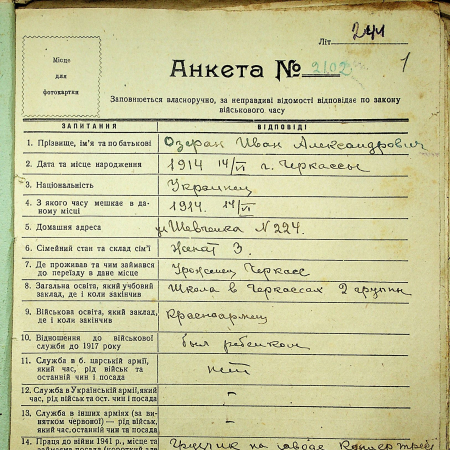 Літ. 244
Місце
для
фотокартки
Анкета № 2102
1
Заповнюється власноручно, за неправдиві відомості відповідає по закону
військового часу
ЗАПИТАННЯ ВІДПОВІДІ
1. Прізвище, ім'я та по батькові Озеран Иван Александрович
2. Дата та місце народження 1914 14/VI г. Черкассы
3. Національність Украинец
4. З якого часу мешкає в да-
ному місці 1914. 14/VI
5. Домашня адреса ул Шевченка N 224.
6. Сімейний стан та склад сім'ї Женат 3.
7. Де проживав та чим займався
до переїзду в дане місце Уроженец Черкасс
8. Загальна освіта, який учбовий
заклад, де і коли закінчив Школа в Черкассах 2 группы
9. Військова освіта, який заклад,
де і коли закінчив Красноармеец
10. Відношення до військової
служби до 1917 року был ребенком
11. Служба в б. царській армії,
який час, рід військ та
останній чин і посада нет
12. Служба в Українській армії, який
час, рід військ та ост. чин і посада –
13. Служба в інших арміях (за ви-
нятком червоної) — рід військ,
який час, останній чин та посада –
14. Праця до війни 1941 р., місце та
на заводе